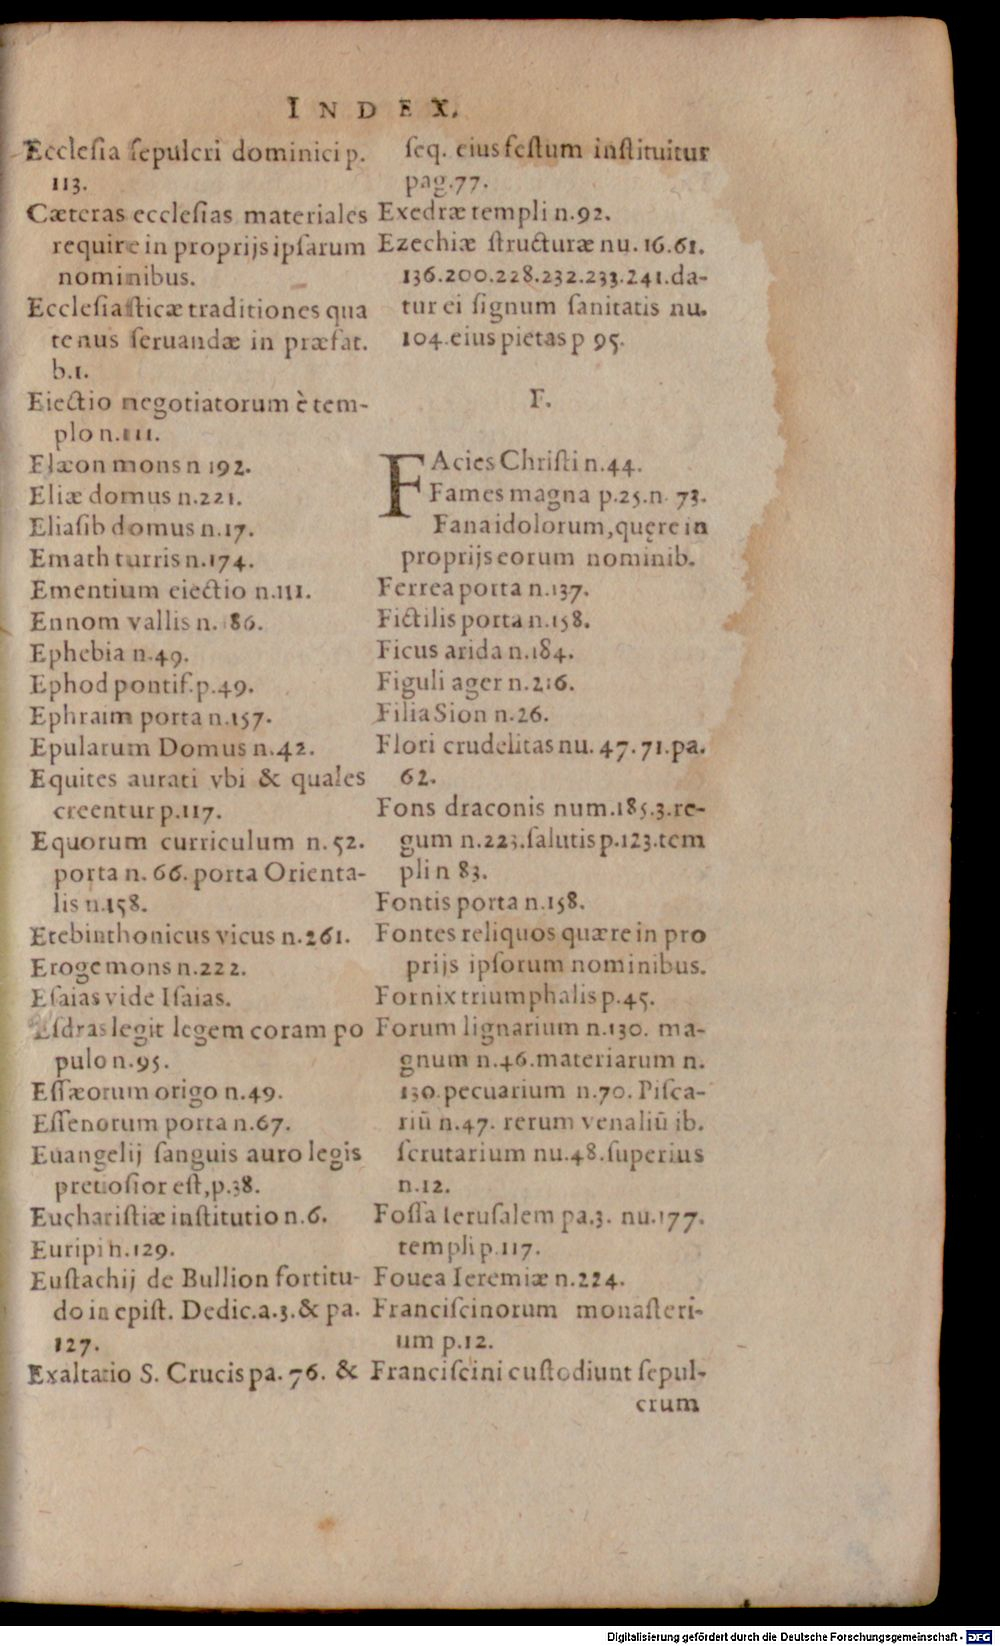 INDEX.
Eccleſia ſepulcri dominici p.
113.
Cæteras eccleſias materiales
require in proprijs ipſarum
nominibus.
Eccleſiaſticæ traditiones qua
tenus ſeruandæ in præfat.
b.1.
Eiectio negotiatorum è tem-
plo n.111.
Elæon mons n 192.
Eliæ domus n.221.
Eliaſib domus n.17.
Emath turris n.174.
Ementium eiectio n.111.
Ennom vallis n. 186.
Ephebia n.49.
Ephod pontif.p.49.
Ephraim porta n.157.
Epularum Domus n.42.
Equites aurati vbi & quales
creentur p.117.
Equorum curriculum n.52.
porta n. 66. porta Orienta-
lis n.158.
Erebinthonicus vicus n.261.
Eroge mons n.222.
Eſaias vide Iſaias.
Eſdras legit legem coram po
pulo n.95.
Eſſæorum origo n.49.
Eſſenorum porta n.67.
Euangelij ſanguis auro legis
pretioſior eſt,p.38.
Euchariſtiæ inſtitutio n.6.
Euripi n.129.
Euſtachij de Bullion fortitu-
do in epiſt. Dedic.a.3.& pa.
127.
Exaltatio S. Crucis pa. 76. &
ſeq. eius feſtum inſtituitur
pag.77.
Exedræ templi n.92.
Ezechiæ ſtructuræ nu. 16.61.
136.200.228.232.233.241.da-
tur ei ſignum ſanitatis nu.
104.eius pietas p 95.
F.
FAcies Chriſti n.44.
Fames magna p.25.n. 73.
Fana idolorum, quęre in
proprijs eorum nominib.
Ferrea porta n.137.
Fictilis porta n.158.
Ficus arida n.184.
Figuli ager n.216.
Filia Sion n.26.
Flori crudelitas nu. 47.71.pa.
62.
Fons draconis num.185.3.re-
gum n.223.ſalutis p.123.tem
pli n 83.
Fontis porta n.158.
Fontes reliquos quære in pro
prijs ipſorum nominibus.
Fornix triumphalis p.45.
Forum lignarium n.130. ma-
gnum n.46.materiarum n.
130.pecuarium n.70. Piſca-
riū n.47. rerum venaliū ib.
ſcrutarium nu.48.ſuperius
n.12.
Foſſa Ieruſalem pa.3. nu.177.
templi p.117.
Fouea Ieremiæ n.224.
Franciſcinorum monaſteri-
um p.12.
Franciſcini cuſtodiunt ſepul-
crum
Digitalisierung gefördert durch die Deutsche Forschungsgemeinschaft - DFG